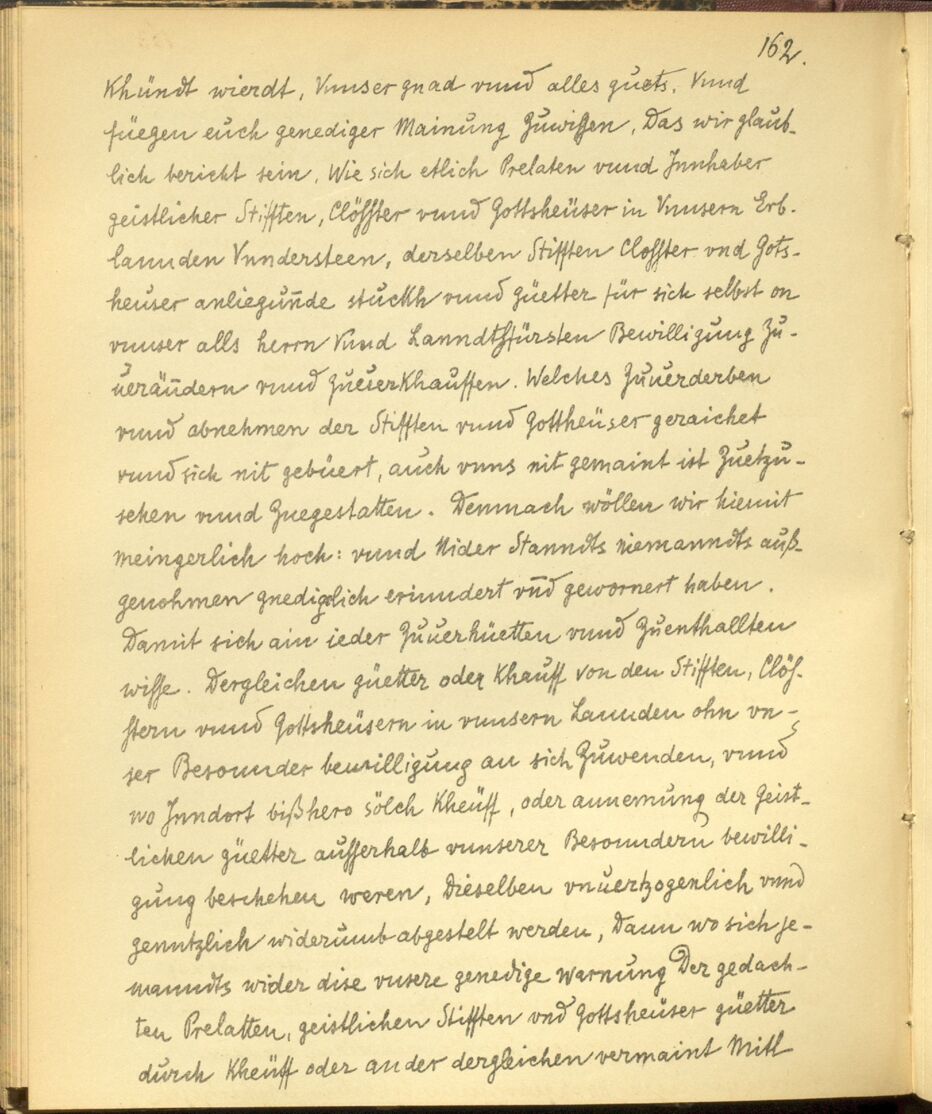 162.
Khündt wierdt, Vnnser gnad vnnd alles guets. Vnnd
füegen euch genediger Mainung Zuwissen, Das wir glaub-
lich bericht sein, Wie sich etlich Prelaten vnnd Innhaber
geistlicher Stifften, Clösster vnnd Gottsheüser in Vnnsern Erb-
lannden Vnndersteen, derselben Stifften Closster vnd Gots-
heuser anliegun̄de stuckh vnnd Güetter für sich selbst on
vnnser alls herrn Vnnd Lanndtsfürsten Bewilligung Zu-
uerän̄dern vnnd ZuuerKhauffen. Welches Zuuerderben
vnnd abnehmen der Stifften vnnd Gottheüser geraichet
vnnd sich nit gebüert, auch vnns nit gemaint ist Zuetzu-
sehen vnnd Zuegestatten. Demnach wöllen wir hiemit
meingerlich hoch: vnnd Nider Stanndts niemanndts auß-
genohmen gnediglich erinndert vn̄d gewornert haben.
Damit sich ain ieder Zuuerhüetten vnnd Zuenthallten
wisse. Dergleichen güetter oder Khauff von den Stifften, Clös-
stern vnnd Gottsheüsern in vnnsern Lannden ohn vn-
ser Besonnder bewilligung an sich Zuwenden, vnnd
wo Inndort bißhero sölch Kheüff, oder annemung der Geist-
lichen güetter ausserhalb vnnserer Besonndern bewilli-
gung beschehen weren, Dieselben vnuertzogenlich vnnd
genntzlich widerumb abgestelt werden, Dann wo sich je-
manndts wider dise vnsere genedige Warnung Der gedach-
ten Prelatten, geistlichen Stifften vnd Gottsheüser güetter
durch Kheüff oder ander dergleichen vermaint Mitl